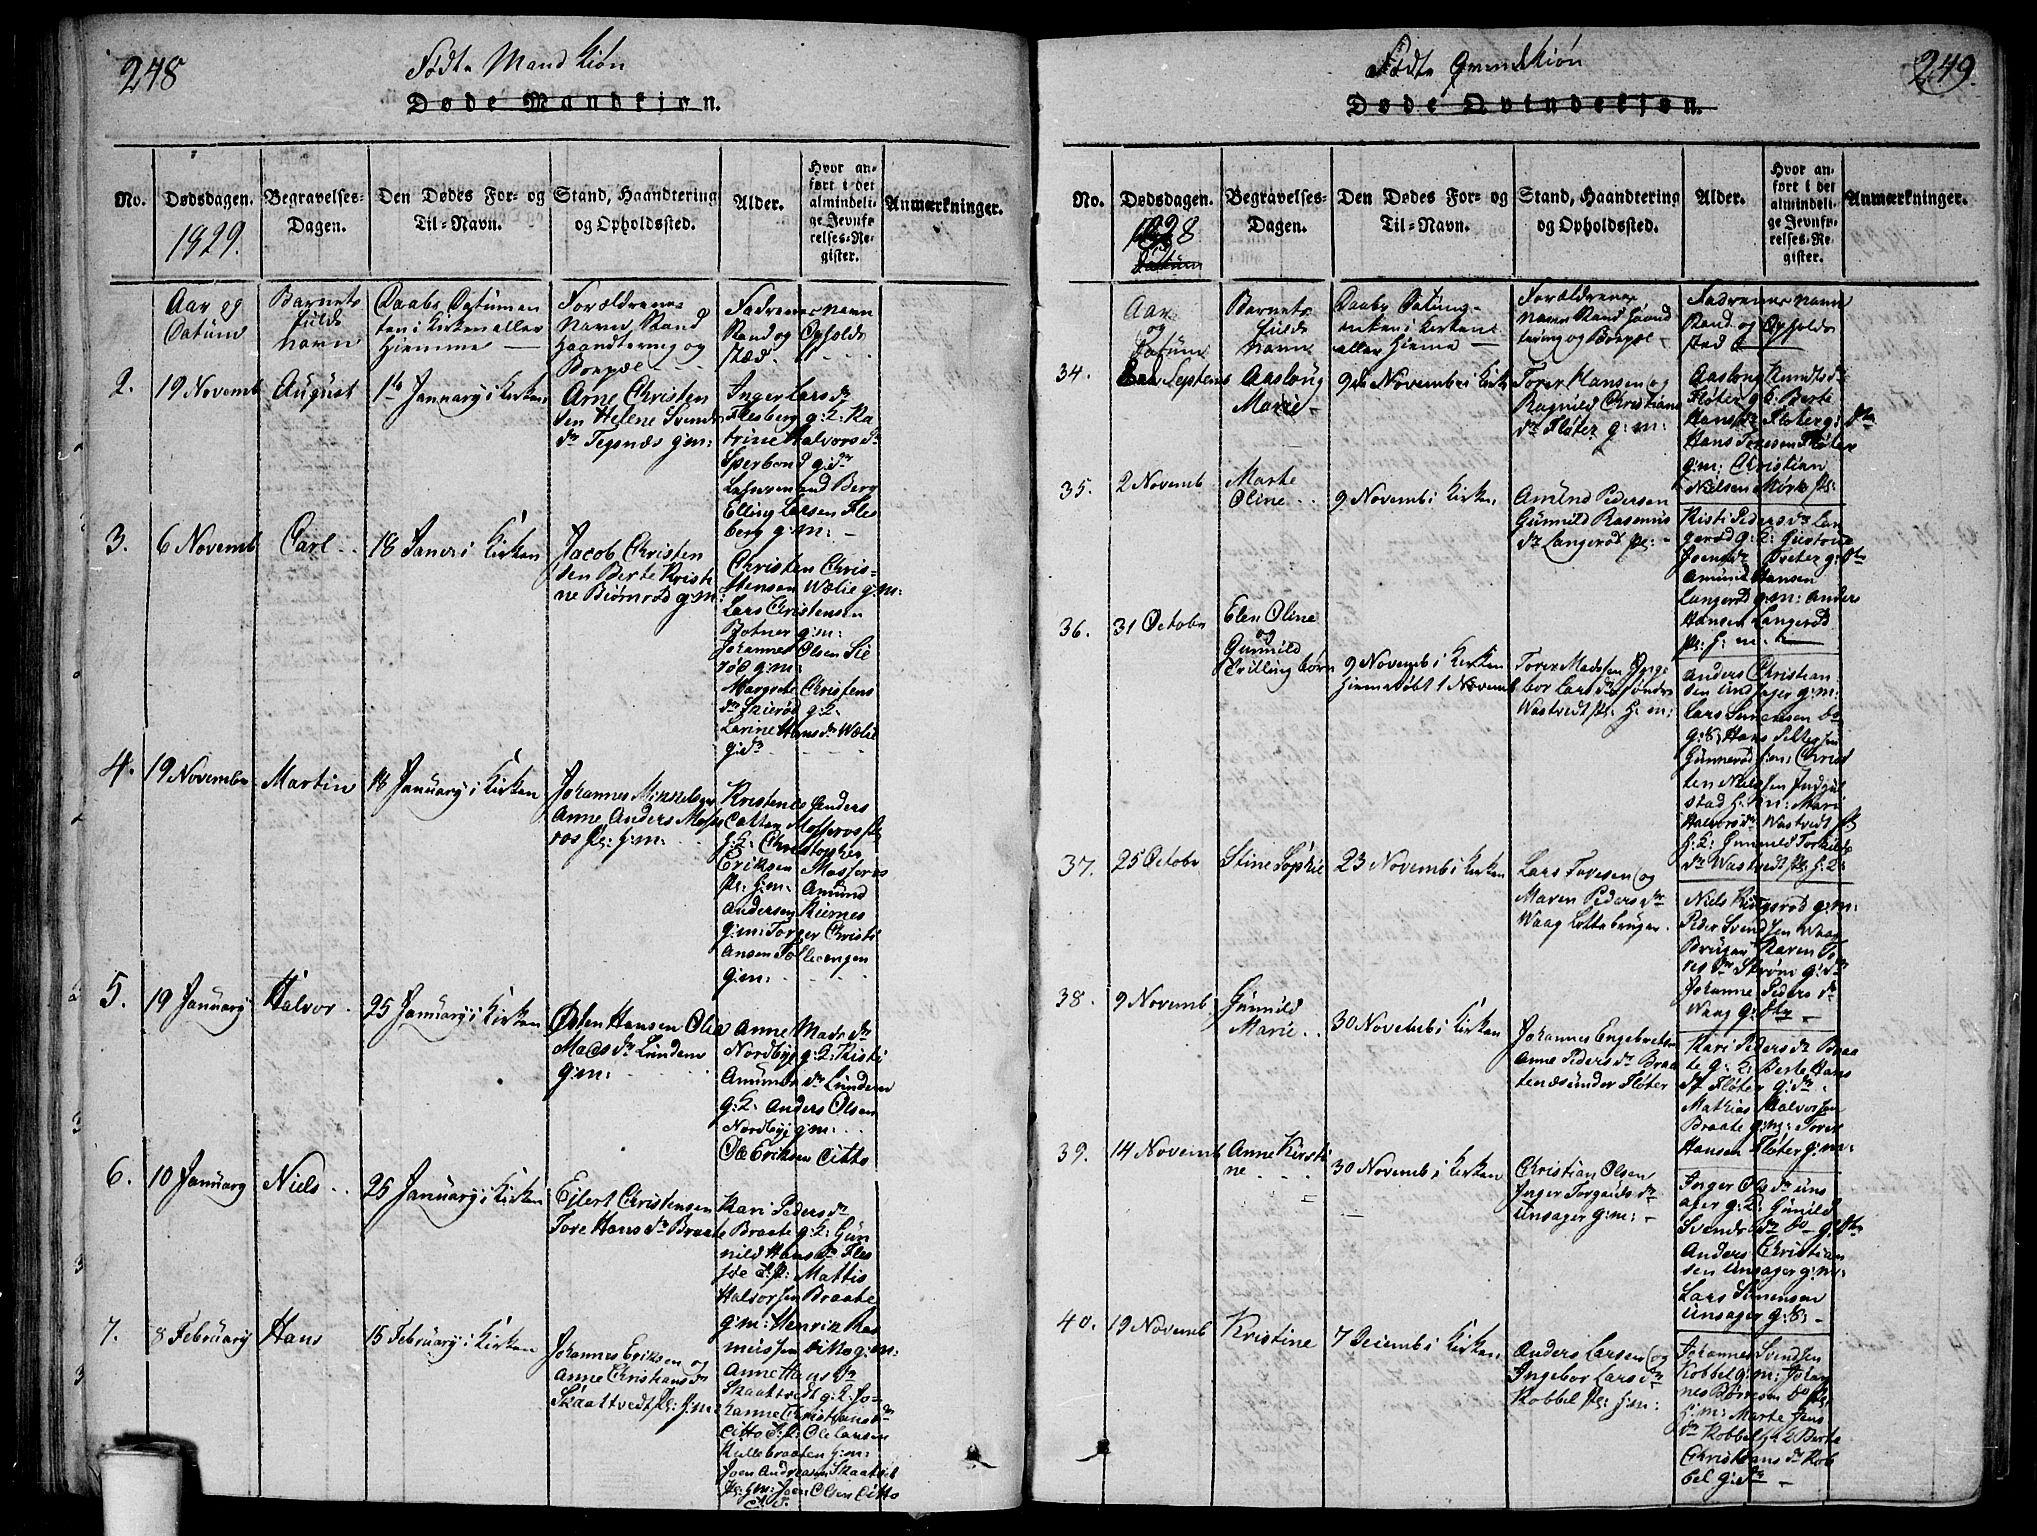 248
Fødte Mandkiøn
Døde Mandkjøn.
No.
Dødsdagen.
1829.
Begravelses-
Dagen.
Den Dødes For- og
Til-Navn.
Stand, Haandtering
og Opholdssted.
Alder.
Hvor an-
ført i det
almindeli-
ge Jevnfø-
relses-Re-
gister.
Anmærkninger.
Aar og
Datum
Barnets
fulde
navn
Daabs Datumen
ten i Kirken eller
Hiemme
Forældrenes
Navn, Stand
Haandtering og
Bopæl
Fadrenes navn
Stand og Opholds
stæd
2.
19 Novemb
August
1te January i Kirken
Arne Christen
sen Helene Svends
dr Tegsnæs g:m:
Inger Lars dr
Flesberg g:k: Ka
trine Halvors dr
Sperbond g:dr
Berg
Elling Larsen Fles
berg g:m:
3.
6 Novemb
Carl
18 Janr i Kirken
Jacob Christen
sen Berte Kristi
ne Biørnrød g:m:
Christen Chris-
tensen Wælie g:m:
Lars Christensen
Botner g:m:
Johannes Olsen Sie
rød g:m:
Margrete Christens
dr Skierød g:k:
Larine Hans dr Wælie
g:dr
4.
19 Novembr
Martin
18 January i Kirken
Johannes Mikkelsen
Anne Anders Mosse
ros pl: h:m:
Kristense Anders
Datter Mosseros pl
h:k: Christopher
Eriksen Mosseros
pl: h:m: Amund
Andersen Kiernes
g:m: Torger Christi
ansen Follevangen
g:m:
5.
19 January
Halvor
25 January i Kirken
Østen Hansen Olia
Mads dr Lundem
g:m:
Anne Mads dr
Nordbye g:k: Kisti
Amunds dr Lundem
g:k: Anders Olsen
Nordbye g:m:
Ole Eriksen Ditto
6.
10 January
Niels
25 January i Kirken
Ejlert Christensen
Tore Hans dr Braate
Kari Peders dr
Braate g:k: Gun
nild Hans dr Fles
Mattis
Halvorsen Braate
g:m: Henrik Ras
mussen Ditto g:m:
7.
8 February
Hans
15 February i Kirken
Johannes Eriksen og
Anne Christians dr
Skaattvedt pl: h:m:
Anne Hans dr
Skaattvedt g:k: Jo-
hanne Christians dr
Ditto Ole Larsen
Kullebraaten h:m:
Joen Andreasen Skaatvet
pl: h:m: Joen Olsen Ditto
249.
Fødte Qvindekiøn
Døde Qvindekjøn.
No.
Dødsdagen.
1828
Datum
Begravelses-
Dagen.
Den Dødes For- og
Til-Navn.
Stand, Haandtering
og Opholdssted.
Alder.
Hvor an-
ført i det
almindeli-
ge Jevnfø-
relses-Re-
gister.
Anmærkninger.
Aar
og
Datum
Barnets
fulde
navn
Daabs Datum
enten i Kirken
eller Hiemme
Forældrenes
navn Stand Haand
tering og Bopæl
Fadrenes navn
Stand og Opholds
sted
34.
Septemb
Aasloug
Marie
9de Novemb i Kirk
Torer Hansen og
Ragnild Christians
dr Fløter g:m:
Aaslong Knudts dr
Fløter g:k: Berte
Hans dr Fløter g: dtr
Hans Toresen Fløter
g:m: Christian
Nilsen Mørk pl:
35.
2 Novemb
Marte
Oline
9 Novemb i Kirken
Amund Pedersen
Gunnild Rasmus
dr Langerød pl:
Kisti Peders dr Lan
gerød g:k: Gustave
Joens dr Fløter g:dtr
Amund Hansen
Langerød g:m: Anders
Hansen Langerød
pl: h: m.
36.
31 Octobr
Elen Oline
og
Gunnild
Tvilling børn
9 Novemb i Kirken
Hiemmedøbt 1 Novemb
Torer Madsen Inge
bor Lars dr Søndre
Wastvedt pl: h:m:
Anders Christian
sen Unsager g:m:
Lars Simensen do
g:S: Hans
Gunnerød h:m: Christ
ten Nielsen
stad h: m: Mari
Halvors dr Wastvedt pl
h:k: Gunnild Torkilds
dr Wastvedt pl: h:k:
37.
25 Octobr
Stine Sophie
23 Novemb i Kirken
Lars Toresen og
Maren Peders dr
Waag Lottebruger
Niels Ringsrød g:m:
Peder Svendsen Waag
Bruger Karen To
res dr Strøm g:dr
Johanne Peders dr
Waag g: dtr
38.
9 Novemb
Gunnild
Marie
30 Novemb i Kirken
Johannes Engebretsen
Anne Peders dr Braa
tenæs under Fløter
Kari Peders dr Braa
te g:k: Berte Hans
dr Fløter g:dr
Mathias Halvorsen
Braate g:m: Torer
Hansen Fløter g:m:
39.
14 Novemb
Anne Kirsti
ne
30 Novemb i Kirken
Christian Olsen
Inger Torgauds dr
Unsager g:m:
Inger Ols dr Uns
ager g:k: Gunild
Svends dr do g:dtr
Anders Christian
sen Unsager g:m:
Lars Simensen
Unsager g:S:
40.
19 Novemb
Kristine
7 Decemb i Kirken
Anders Larsen og
Ingebor Lars dr
Kobbel pl: h:m:
Johannes Svendsen
Kobbel g:m: Johan
nes Børresen do pl:
h:m: Marte Jens
dr Kobbel g:k Berte
Christians dr Kob
bel g:dr